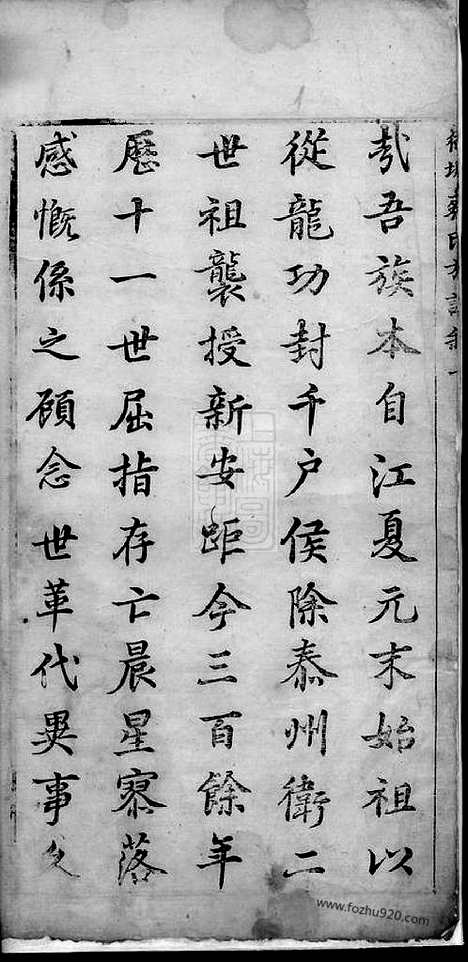 氏族譜
㢤吾族本自江夏元末始祖以
從龍功封千户侯除泰州衛二
世祖襲授新安距今三百餘年
歷十一世屈指存亡晨星寥落
感慨係之顧念世革代異事
www.fozhu920.com